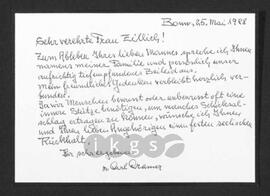 Bonn, 25. Mai 1988
Sehr verehrte Frau Zillich!
Zum Ableben Ihres lieben Mannes spreche ich Ihnen
namens meiner Familie und persönlich unser
aufrichtig tiefempfundenes Beileid aus.
Mein freundliches Gedenken verbleibt herzlich, ver-
bunden.
Da wir Menschen bewusst oder unbewusst oft eine
innere Stütze benötigen, um manches Schicksal-
schlag ertragen zu können, wünsche ich Ihnen
und Ihren lieben Angehörigen einen festen seelischen
Rückhalt.
Ihr sehr ergebener
Carl
ikgs